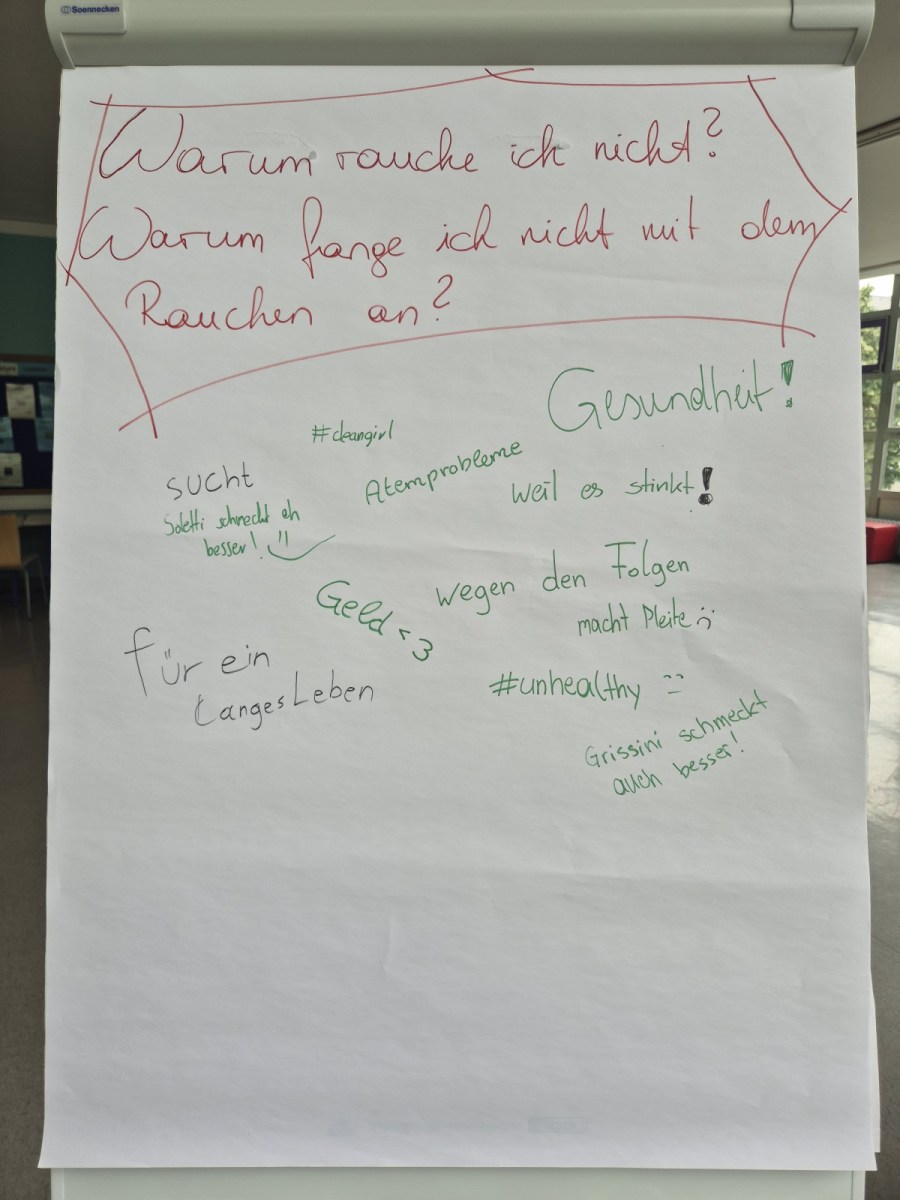 Soennecken
Warum rauche ich nicht?
Warum fange ich nicht mit dem
Rauchen an?
Gesundheit!
#cleangirl
Atemprobleme
sucht
weil es stinkt!
Soletti schmeckt eh
besser! :)
wegen den Folgen
Geld <3
macht Pleite :(
für ein
langes Leben
#unhealthy
Grissini schmeckt
auch besser!